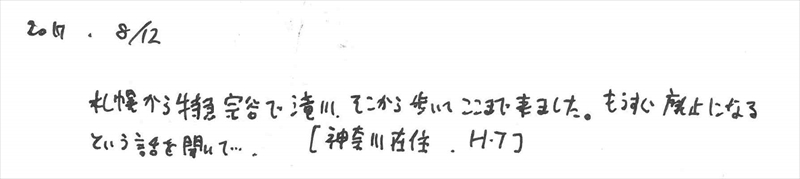 2017. 8/12
札幌から特急宗谷で滝川、そこから歩いてここまで来ました。もうすぐ廃止になる
という話を聞いて…. [神奈川在住. H.T]